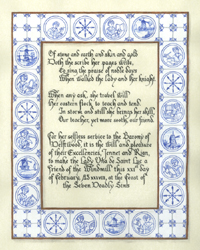 Of stone and earth and skin and gold
Doth the scribe her quapa write,
To sing the praise of noble days
When walked the lady and her knight.
When any ask, she travel will
Her eastern flock, to teach and tend.
In storm and still she brings her skill,
Our teacher, yet more sooth, our friend.
For her selfless service to the Barony of
Delftwood, it is the will and pleasure
of their Excellencies, Jennet and
to make the Lady de Saint Luc a
Friend of the Windmill this xxi day
of February, AS xxxvii, at the Feast of
the Seven Deadly Sins